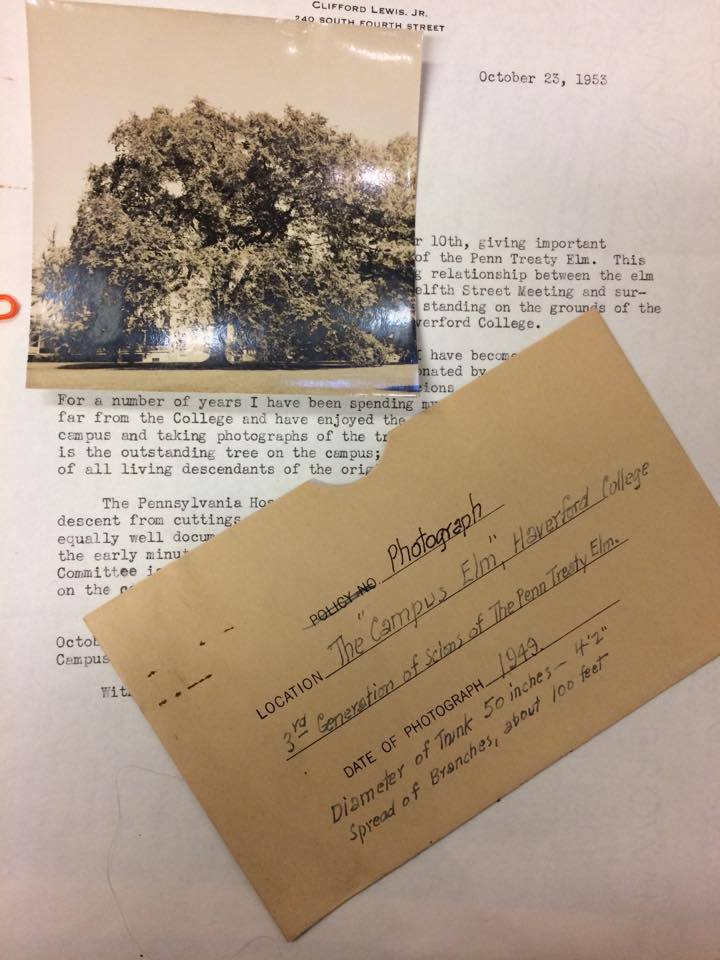 CLIFFORD LEWIS, JR.
240 SOUTH FOURTH STREET
October 23, 1953
10th, giving important
of the Penn Treaty Elm. This
relationship between the elm
Street Meeting and sur-
standing on the grounds of the
College.
have become
by
For a number of years I have been spending
far from the College and have enjoyed the
campus and taking photographs of the
is the outstanding tree on the campus;
of all living descendants of the
The Pennsylvania
descent from cuttings
equally well
the early
Committee
on the
Campus
POLICY NO. Photograph
LOCATION The "Campus Elm", Haverford College
3rd Generation of Scions of The Penn Treaty Elm.
DATE OF PHOTOGRAPH 1949.
Diameter of Trunk 50 inches — 4'2"
Spread of Branches, about 100 feet